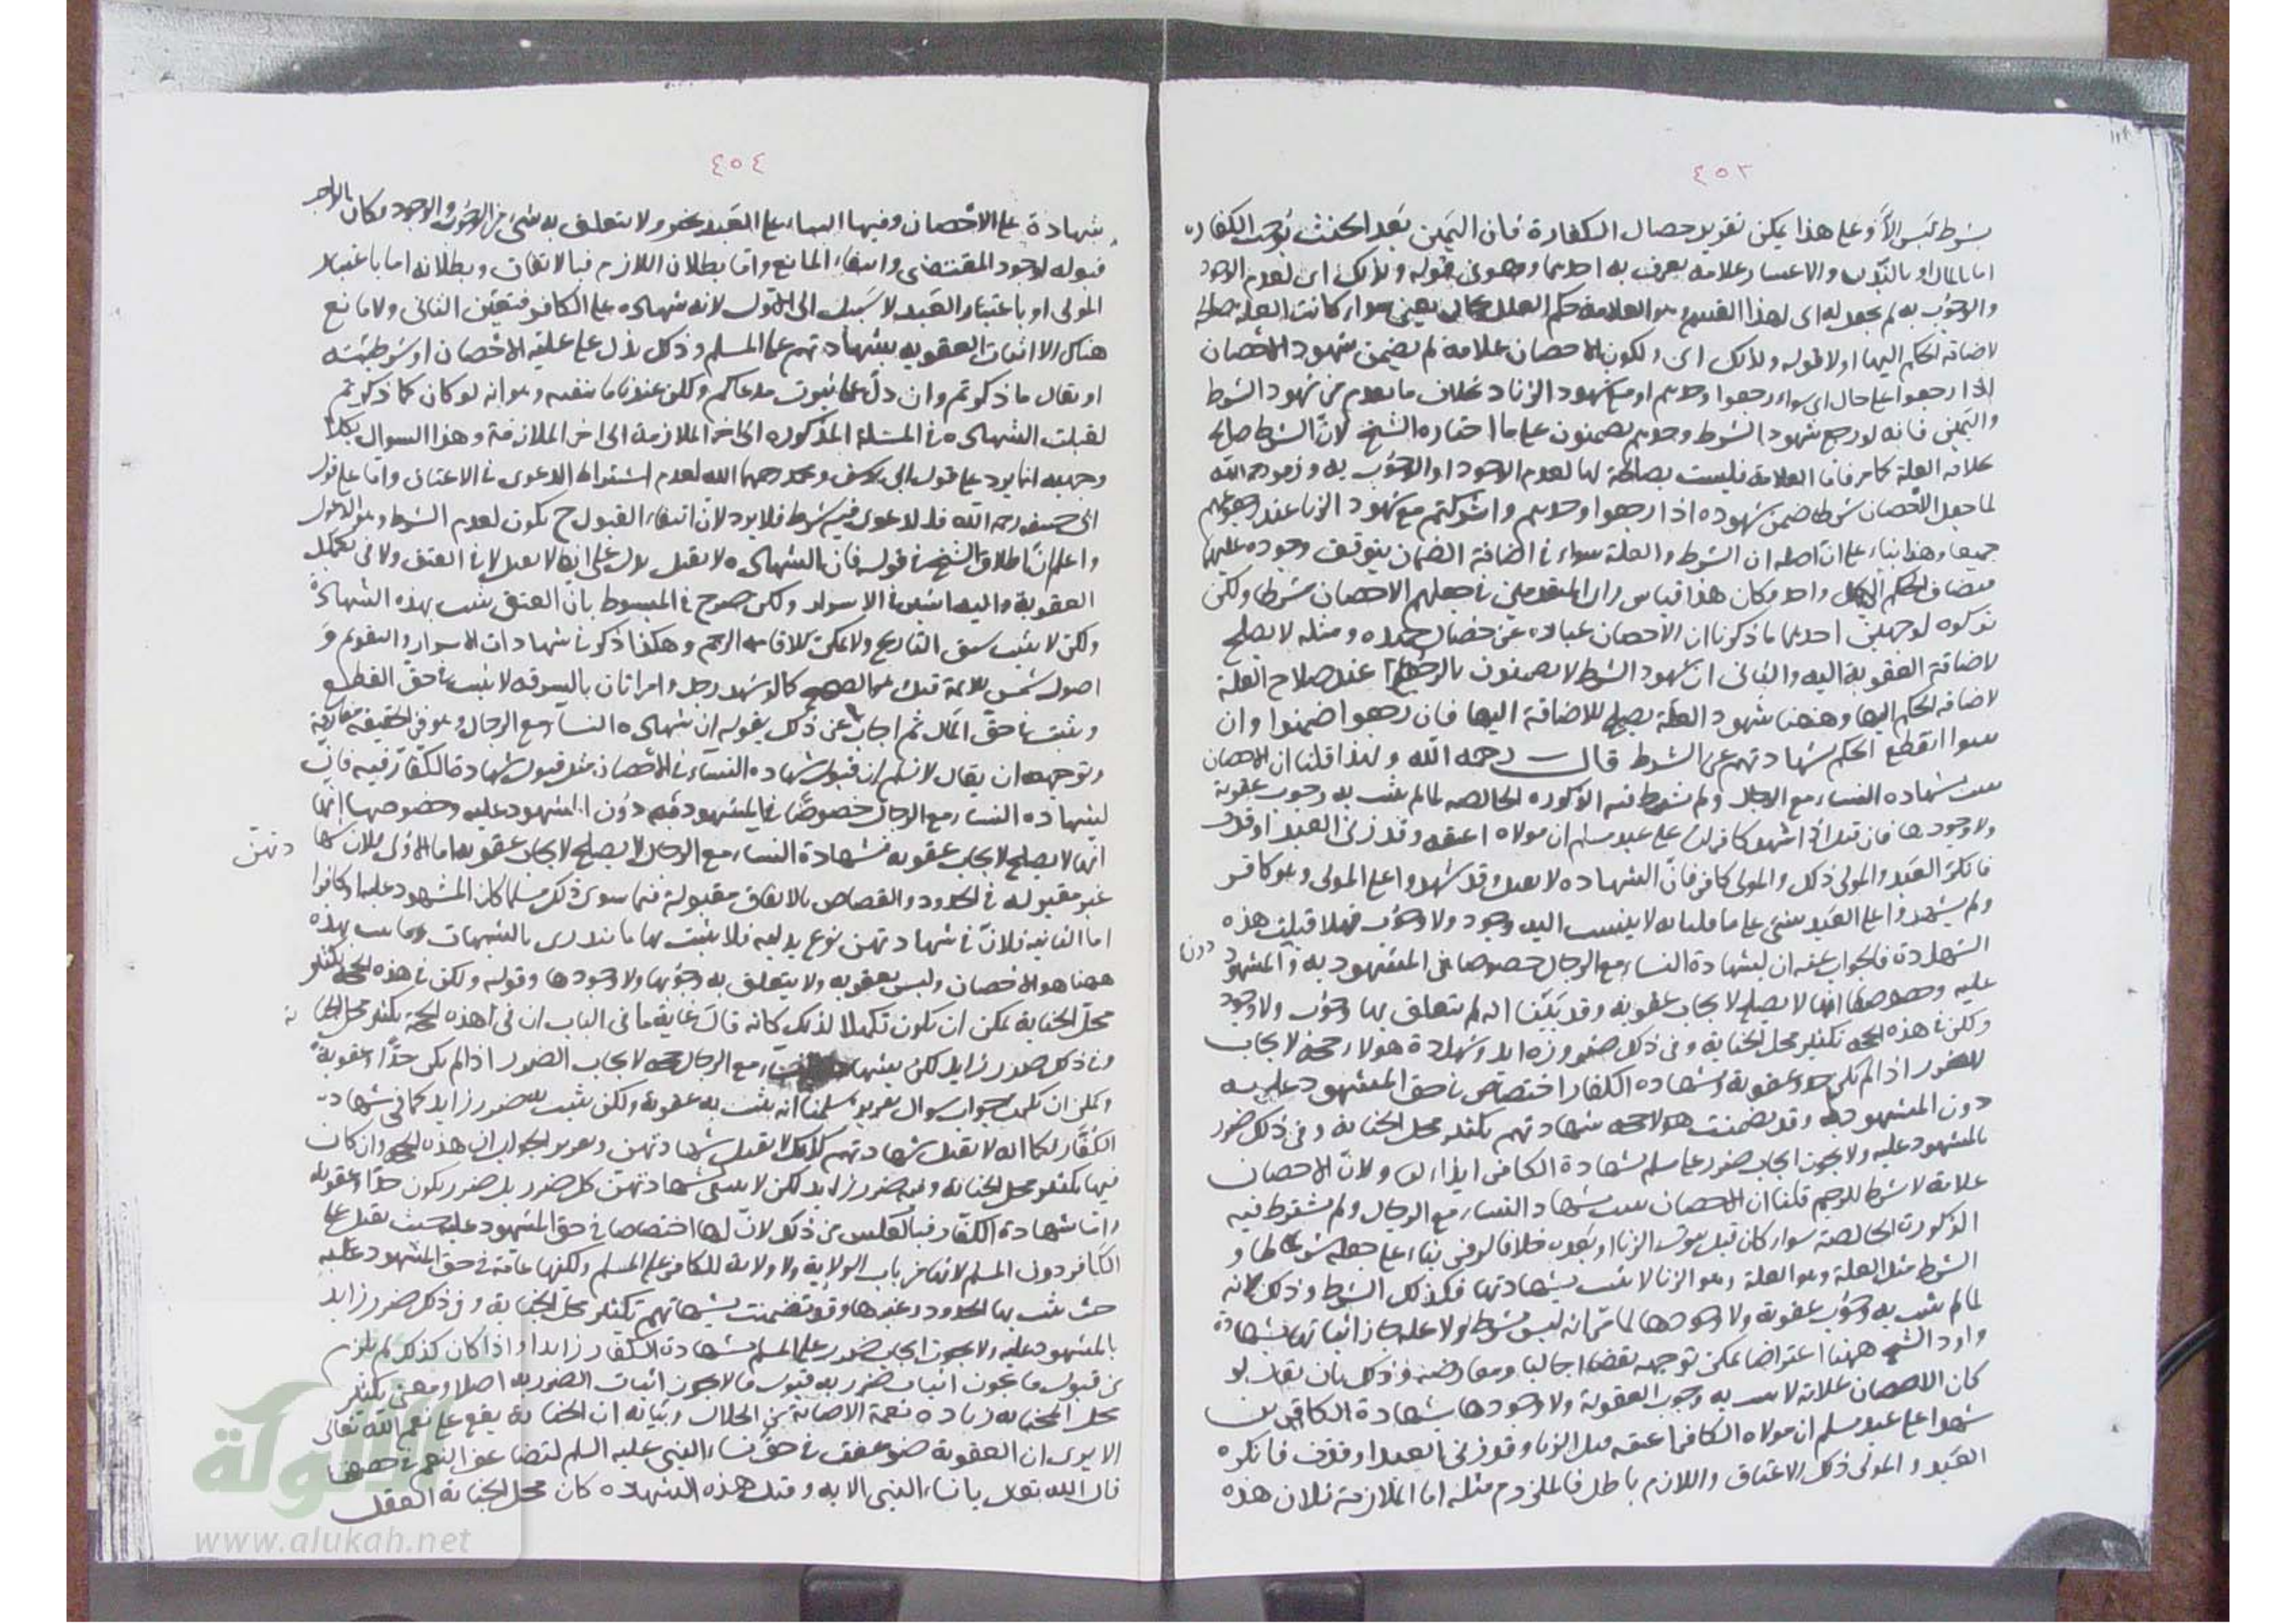 ٤٥٣
بشرط ليس الا وعلى هذا يمكن تقرير خصال الكفارة فان اليمين بعد الحنث توجب الكفارة
اما بالمال او بالبدن والاعسار علامة يعرف به احدهما وهو في قوله ولذلك اى لعدم الوجود
والوجوب به لم يجعل له اى لهذا القسم وهو العلامة حكم العلل بحال يعنى سواء كانت العلة صالحة
لاضافة الحكم اليها اولا قوله ولذلك اى ولكون الاحصان علامة لم يضمن شهود الاحصان
اذا رجعوا على حال اى سواء رجعوا وحدهم او مع شهود الزنا بخلاف ما تقدم من شهود الشرط
واليمين فانه لو رجع شهود الشرط وحدهم يضمنون على ما اختاره الشيخ لان الشرط صالح
خلافة العلة كما مر فاما العلامة فليست بصالحة لها لعدم الوجود او الوجوب به وزفر رحمه الله
لما جعل الاحصان شرطا ضمن شهوده اذا رجعوا وحدهم واشركتم مع شهود الزنا عند رجوعهم
جميعا وهذا بناء على ان اصله ان الشرط والعلة سواء فى اضافة الضمان يتوقف وجوده عليهما
فيضاف الحكم الى كل واحد وكان هذا قياس راى المتقدمين فى جعلهم الاحصان شرطا ولكن
تركوه لوجهين احدهما ما ذكرنا ان الاحصان عبارة عن خصال حميدة ومثله لا يصلح
لاضافة العقوبة اليه والثانى ان شهود الشرط لا يضمنون بالرجوع عند صلاح العلة
لاضافة الحكم اليها وههنا شهود العلة يصلح للاضافة اليها فان رجعوا ضمنوا وان
ثبتوا انقطع الحكم بشهادتهم عن الشرط قال رحمه الله ولهذا قلنا ان الاحصان
يثبت بشهادة النساء مع الرجال ولم يشترط فيه الذكورة الخالصة لما لم يثبت به وجوب عقوبة
ولا وجودها فان قيل اذا شهد كافران على عبد مسلم ان مولاه اعتقه وقد زنى العبد او قذف
فانكر العبد والمولى ذلك والمولى كافر فان الشهادة لا تقبل وقد شهدوا على المولى وهو كافر
ولم يشهدوا على العبد بشئ على ما قلنا انه لا ينسب اليه وجود ولا وجوب فهلا قبلت هذه
الشهادة فالجواب عنه ان لشهادة النساء مع الرجال خصوصا فى المشهود به دون المشهود
عليه وخصوصها انها لا يصلح لايجاب عقوبة وقد بينا انه لم يتعلق بها وجوب ولا وجود
ولكن فى هذه الحجة تكثير محل الجناية وفى ذلك ضرر زايد وشهادة هولاء حجة لايجاب
الضرر اذا لم يكن حدا وعقوبة ولشهادة الكفار اختصاص فى حق المشهود عليه
دون المشهود به وقد تضمنت هولاء شهادتهم تكثير محل الجناية وفى ذلك ضرر
بالمشهود عليه ولا يجوز ايجاب ضرر على مسلم بشهادة الكافر ابدا ولان الاحصان
علامة لا شرط للرجم قلنا ان الاحصان يثبت بشهادة النساء مع الرجال ولم يشترط فيه
الذكورة الخالصة سواء كان قبل ثبوت الزنا او بعده خلافا لزفر بناء على جعله شرطا و
الشرط مثل العلة وهو العلة وهو الزنا لا يثبت بشهادتها فكذلك الشرط وذلك لانه
لما لم يثبت به وجوب عقوبة ولا وجودها لما مر انه ليس بشرط ولا علة جاز اثباتها بشهادة
واورد الشيخ ههنا اعتراضا يمكن توجيهه نقضا اجماليا ومعارضة وذلك بان يقال لو
كان الاحصان علامة لا يثبت به وجوب العقوبة ولا وجودها بشهادة الكافرين
شهدا على عبد مسلم ان مولاه الكافر اعتقه قبل الزنا وقد زنى العبد او قذف فانكره
العبد والمولى ذلك الاعتاق واللازم باطل فالملزوم مثله اما الملازمة فلان هذه
٤٥٤
شهادة على الاحصان وفيها البناء على العبد ولا يتعلق به شئ من الوجوب والوجود
قبوله لوجود المقتضى وانتفاء المانع واما بطلان اللازم فبالاتفاق وبطلانه اما باعتبار
المولى او باعتبار العبد لا سبيل الى الاول لانه شهادة على الكافر فتعين الثانى ولا مانع
هناك الا اثبات العقوبة بشهادتهم على المسلم وذلك يدل على علية الاحصان او شرطيته
او يقال ما ذكرتم وان دل على ثبوت مدعاكم ولكن عندنا ما ينفيه وهو انه لو كان كما ذكرتم
لقبلت الشهادة فى المسئلة المذكورة الى اخر الملازمة الى اخر الملازمة وهذا السوال بكلا
وجهيه انما يرد على قول ابى يوسف ومحمد رحمهما الله لعدم اشتراط الدعوى فى الاعتاق واما على قول
ابى حنيفة رحمه الله فلا لدعوى فيه شرط فلا يرد لان انتفاء القبول ح يكون لعدم الشرط وهو الدعوى
واعلم ان اطلاق الشيخ فى قوله فان الشهادة لا تقبل يدل على انها لا تقبل لا فى العتق ولا فى تكميل
العقوبة واليه اشير فى الاسرار ولكن صرح فى المبسوط بان العتق يثبت بهذه الشهادة
ولكن لا يثبت سبق التاريخ ولا يمكن اقامة الرجم وهكذا ذكر فى شهادات الاسرار والتقويم و
اصول شمس الائمة قيل هو الصحيح كما لو شهد رجل وامراتان بالسرقة لا يثبت فى حق القطع
ويثبت فى حق المال ثم اجاب عن ذلك بقوله ان شهادة النساء مع الرجال وهو فى الحقيقة معارضة
وتوجيهه ان يقال لا نسلم ان قبول شهادة النساء فى الاحصان مثل قبول شهادة الكفار فيه فان
لشهادة النساء مع الرجال خصوصا فى المشهود به دون المشهود عليه وخصوصها انها
انها لا يصلح لايجاب عقوبة فشهادة النساء مع الرجال لا يصلح لايجاب عقوبة اما الاولى فلان شها
دتهن
غير مقبولة فى الحدود والقصاص بالاتفاق مقبولة فيما سوى ذلك مسلما كان المشهود عليه او كافرا
اما الثانية فلان فى شهادتهن نوع بدلية فلا يثبت بها ما يندرى بالشبهات وما يثبت بهذه
ههنا هو الاحصان وليس بعقوبة ولا يتعلق به وجوبها ولا وجودها وقوله ولكن فى هذه الحجة تكثير
محل الجناية يمكن ان يكون تكملا لذلك كانه قال غاية ما فى الباب ان فى هذه الحجة تكثير محل الجنا
ية
وفى ذلك ضرر زايد لكن بشهادة النساء مع الرجال حجة لايجاب الضرر اذا لم يكن حدا وعقوبة
ويمكن ان يكون جواب سوال تقريره سلمنا انه يثبت به عقوبة ولكن يثبت به ضرر زايد كما فى شهادت
الكفار فكما انه لا تقبل شهادتهم كذلك لا تقبل شهادتهن وتقرير الجواب ان هذه الحجة وان كان
فيها تكثير محل الجناية وفيه ضرر زايد لكن لا ينفى شهادتهن كل ضرر بل ضرر يكون حدا وعقوبة
واما شهادة الكفار فبالعكس من ذلك لان لها اختصاصا فى حق المشهود عليه حيث تقبل على
الكافر دون المسلم لانها من باب الولاية ولا ولاية للكافر على المسلم ولكنها عامة فى حق المشهود عليه
حيث يثبت بها الحدود وغيرها وقد تضمنت شهادتهم تكثير محل الجناية وفى ذلك ضرر زايد
بالمشهود عليه ولا يجوز ايجاب ضرر على المسلم بشهادة الكفار زايدا واذا كان كذلك لم يلزم
من قبول ما يجوز اثبات ضرر به قبول ما لا يجوز اثبات الضرر به اصلا ومعنى تكثير
محل الجناية زيادة نعمة الاصابة من الحلال وبيانه ان الجناية يقع على نعم الله تعالى
الا يرى ان العقوبة ضوعفت فى حق نساء النبى عليه السلم لتضاعف النعم فى حقهن
قال الله تعالى يا نساء النبى الاية وقبل هذه الشهادة كان محل الجناية العقل
الألوكة
www.alukah.net